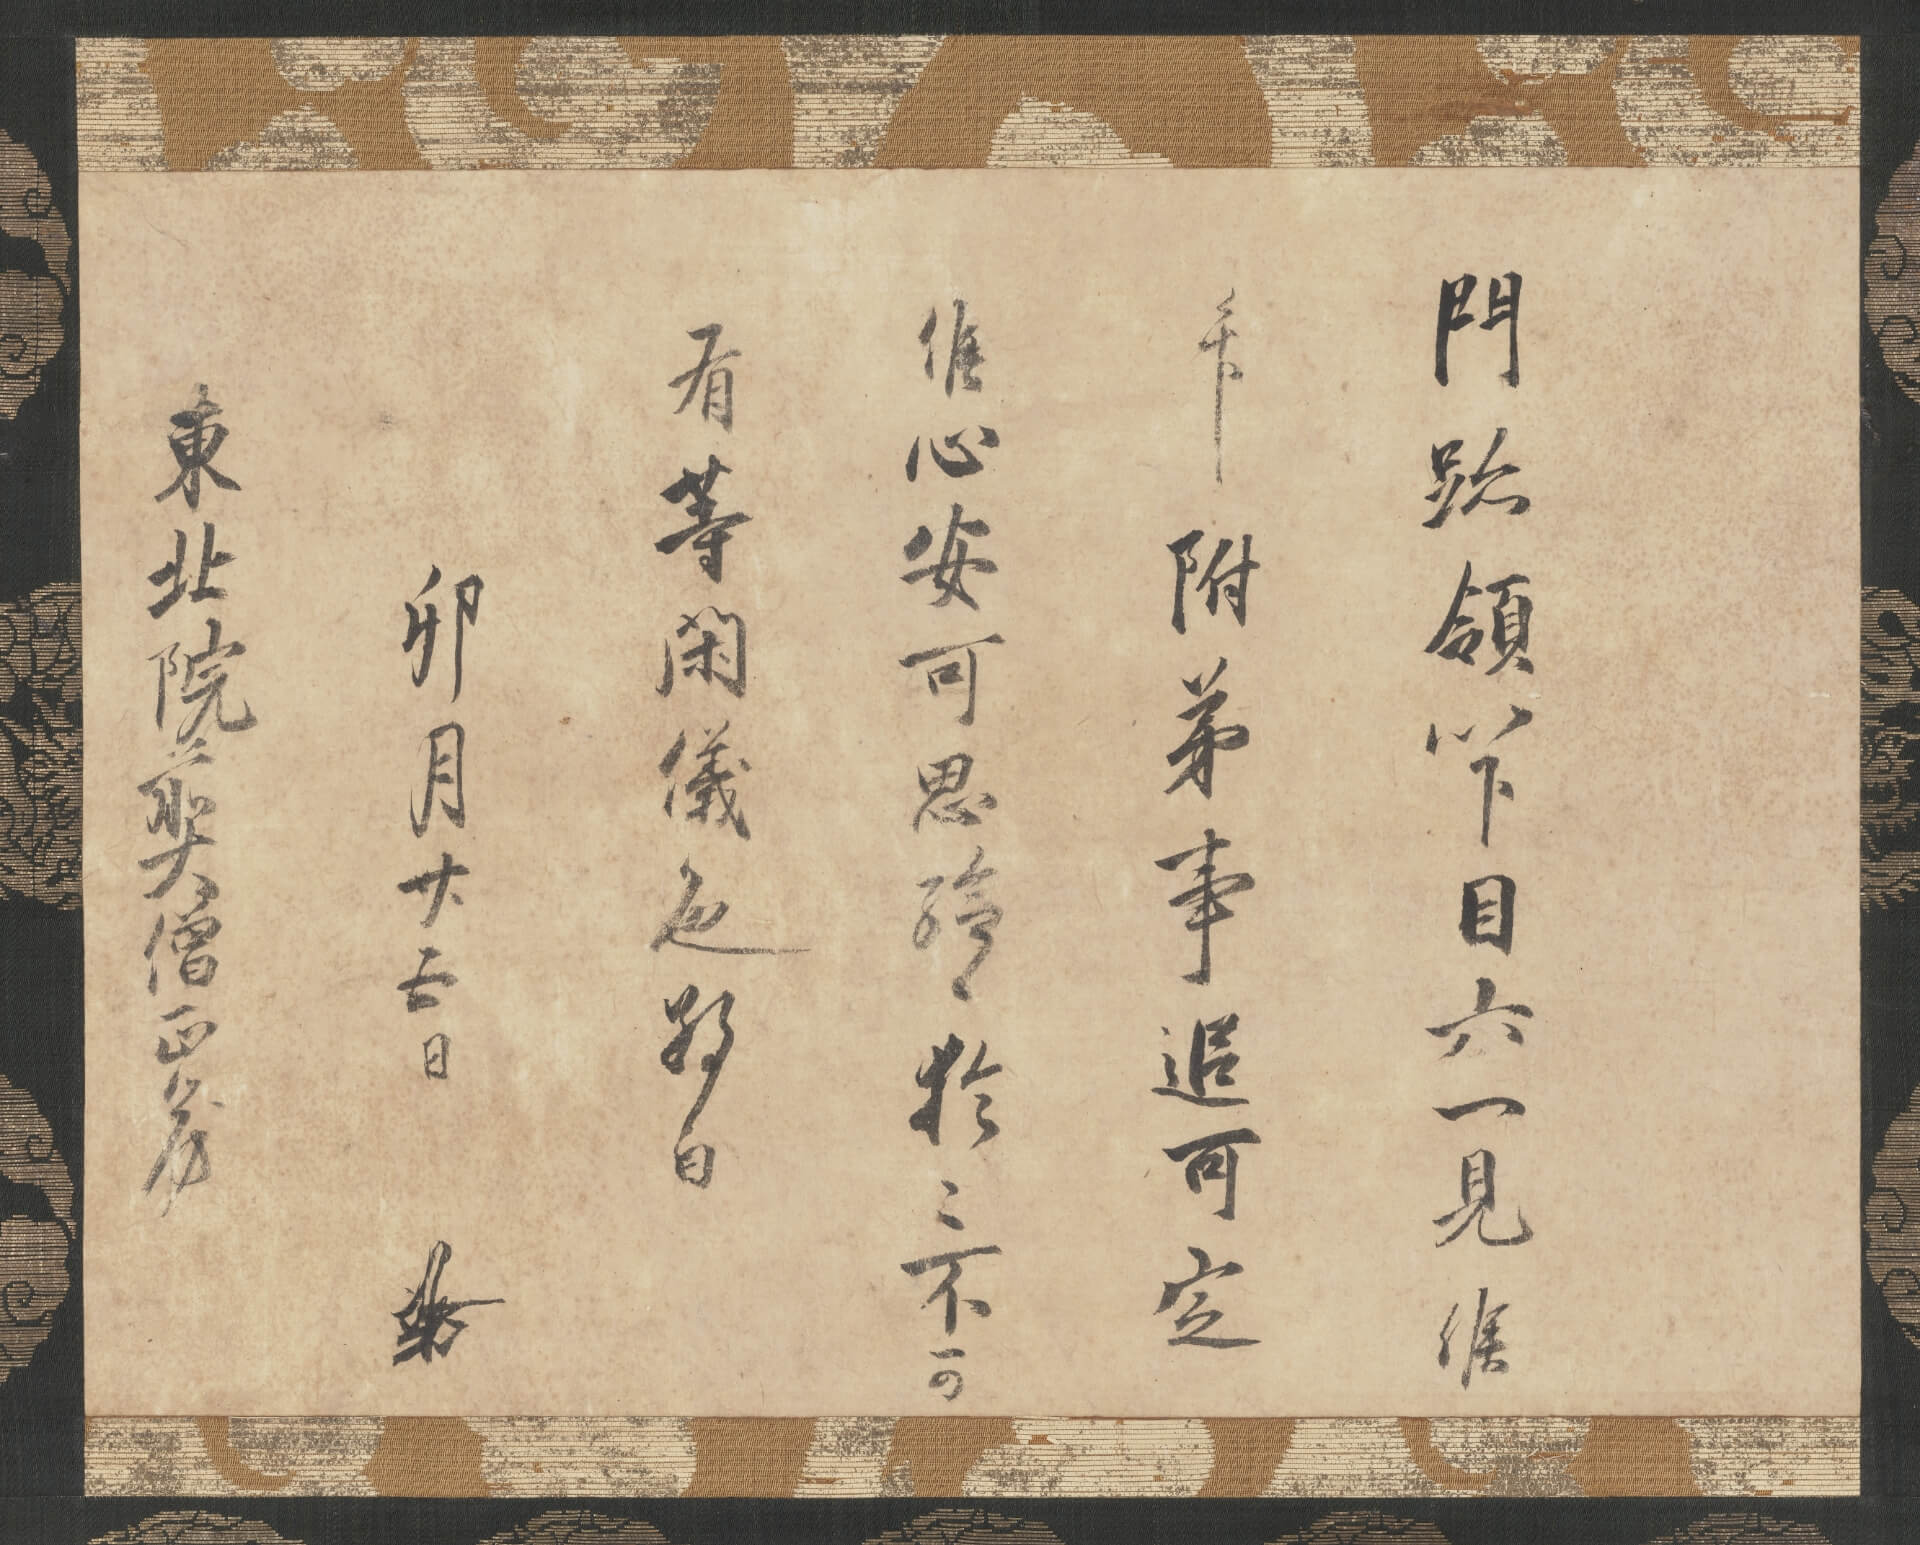 門跡領以下目六一見候
了附弟事追可定
候心安可思給於三不可
有等閑儀也敬白
卯月廿五日
東北院僧正房